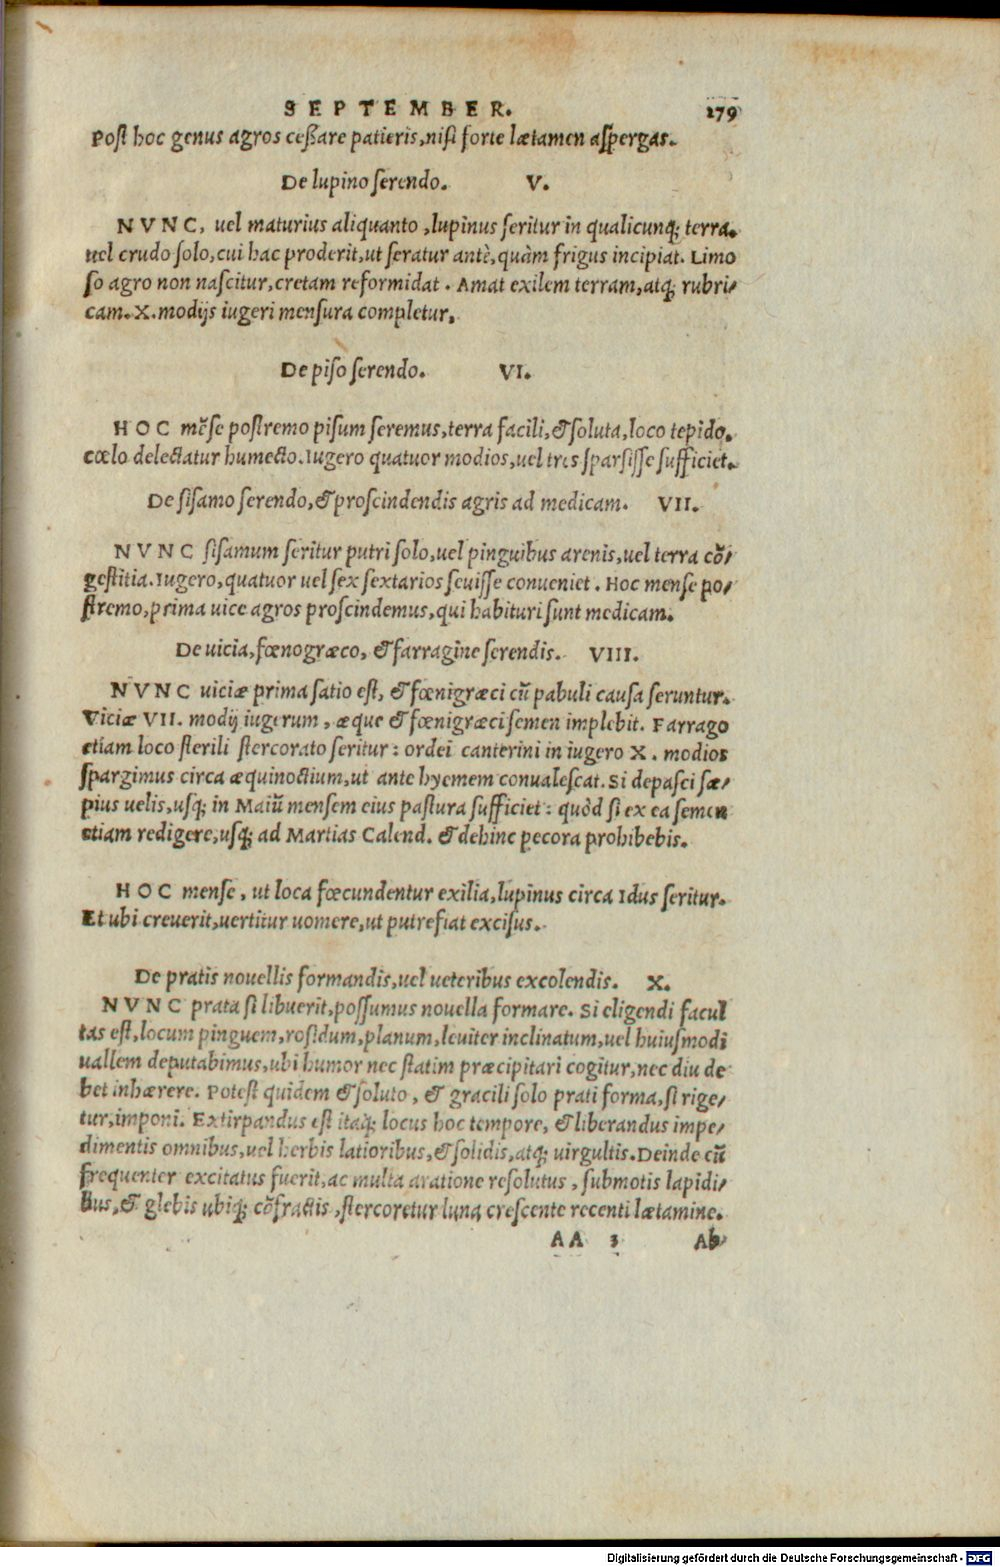 SEPTEMBER. 179
Post hoc genus agros ceßare patieris, nisi forte lætamen aspergas.
De lupino serendo. V.
NVNC, uel maturius aliquanto, lupinus seritur in qualicunq; terra.
uel crudo solo, cui hac proderit, ut seratur antè, quàm frigus incipiat. Limo
so agro non nascitur, cretam reformidat. Amat exilem terram, atq; rubri-
cam. X. modijs iugeri mensura completur.
De piso serendo. VI.
HOC mẽse postremo pisum seremus, terra facili, & soluta, loco tepido.
cœlo delectatur humecto. Iugero quatuor modios, uel tres sparsisse sufficiet.
De sisamo serendo, & proscindendis agris ad medicam. VII.
NVNC sisamum seritur putri solo, uel pinguibus arenis, uel terra cõ-
gestitia. Iugero, quatuor uel sex sextarios seuisse conueniet. Hoc mense po-
stremo, prima uice agros proscindemus, qui habituri sunt medicam.
De uicia, fœnogræco, & farragine serendis. VIII.
NVNC uiciæ prima satio est, & fœnigræci cũ pabuli causa seruntur.
Viciæ VII. modij iugerum, æque & fœnigræci semen implebit. Farrago
etiam loco sterili stercorato seritur: ordei canterini in iugero X. modios
spargimus circa æquinoctium, ut ante hyemem conualescat. Si depasci sæ-
pius uelis, usq; in Maiũ mensem eius pastura sufficiet: quòd si ex ea semen
etiam redigere, usq; ad Martias Calend. & dehinc pecora prohibebis.
HOC mense, ut loca fœcundentur exilia, lupinus circa Idus seritur.
Et ubi creuerit, uertitur uomere, ut putrefiat excisus.
De pratis nouellis formandis, uel ueteribus excolendis. X.
NVNC prata si libuerit, possumus nouella formare. Si eligendi facul
tas est, locum pinguem, rosidum, planum, leuiter inclinatum, uel huiusmodi
uallem deputabimus, ubi humor nec statim præcipitari cogitur, nec diu de
bet inhærere. Potest quidem & soluto, & gracili solo prati forma, si rige-
tur, imponi. Extirpandus est itaq; locus hoc tempore, & liberandus impe-
dimentis omnibus, uel herbis latioribus, & solidis, atq; uirgultis. Deinde cũ
frequenter excitatus fuerit, ac multa aratione resolutus, submotis lapidi-
bus, & glebis ubiq; cõfractis, stercoretur luna crescente recenti lætamine.
AA 3 Ab
Digitalisierung gefördert durch die Deutsche Forschungsgemeinschaft - DFG